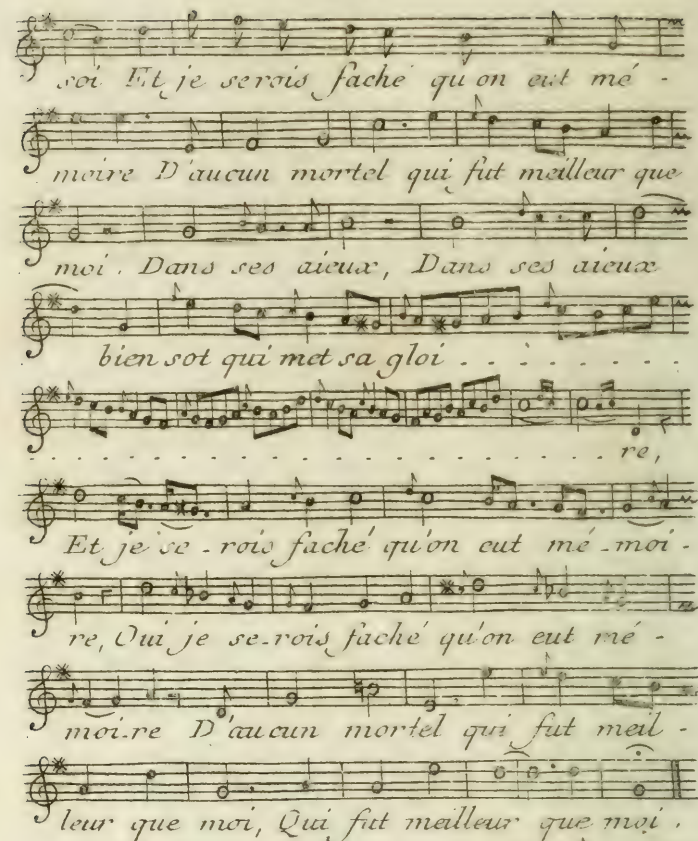 soi Et je serois faché qu'on eut mé -
moire D'aucun mortel qui fut meilleur que
moi. Dans ses aieux, Dans ses aieux
bien sot qui met sa gloi . . . . . . . . .
. . . . . . . . . . . . . . . . re,
Et je se - rois faché qu'on eut mé - moi -
re, Oui je se - rois faché qu'on eut mé -
moi - re D'aucun mortel qui fut meil -
leur que moi, Qui fut meilleur que moi .